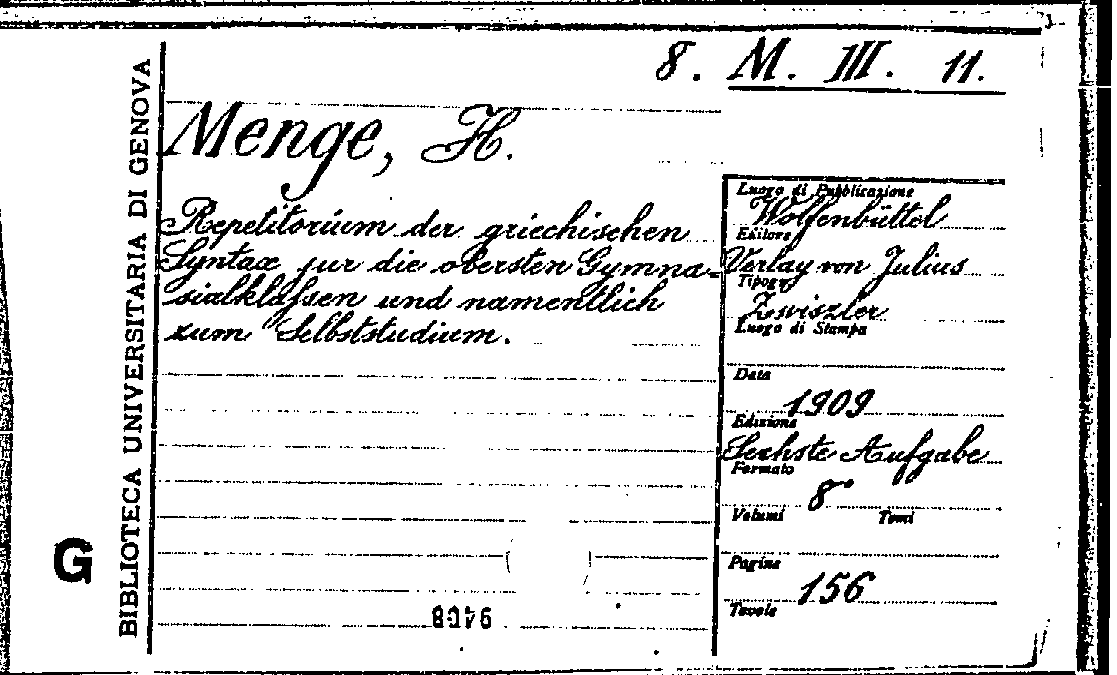 8. M. III. 11.
BIBLIOTECA UNIVERSITARIA DI GENOVA
G
Menge, H.
Repetitorium der griechischen
Syntax fur die obersten Gymna-
sialklassen und namentlich
zum Selbststudium.
Luogo di Pubblicazione
Wolfenbüttel
Editore
Verlag von Julius
Tipogr.
Zwiszler
Luogo di Stampa
Data
1909
Edizione
Sechste Aufgabe
Formato
8°
Volumi Tomi
Pagine
156
Tavole